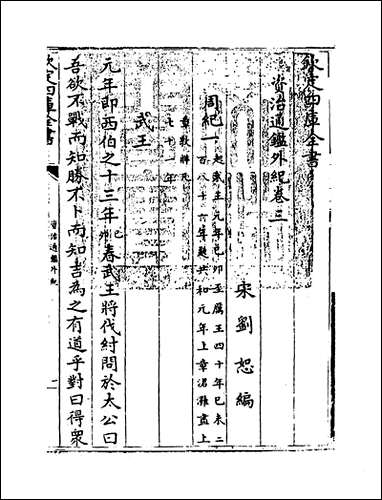 欽定四庫全書
資治通鑑外紀卷三
宋劉恕編
周紀一
起武王元年己卯至厲王四十年己未二
百八十年起共和元年上章涒灘盡上
章敦牂凡
七十一年
武王
元年即西伯之十三年己卯春武王將伐紂問於太公曰
吾欲不戰而知勝不卜而知吉為之有道乎對曰得衆
欽定四庫全書
資治通鑑外紀